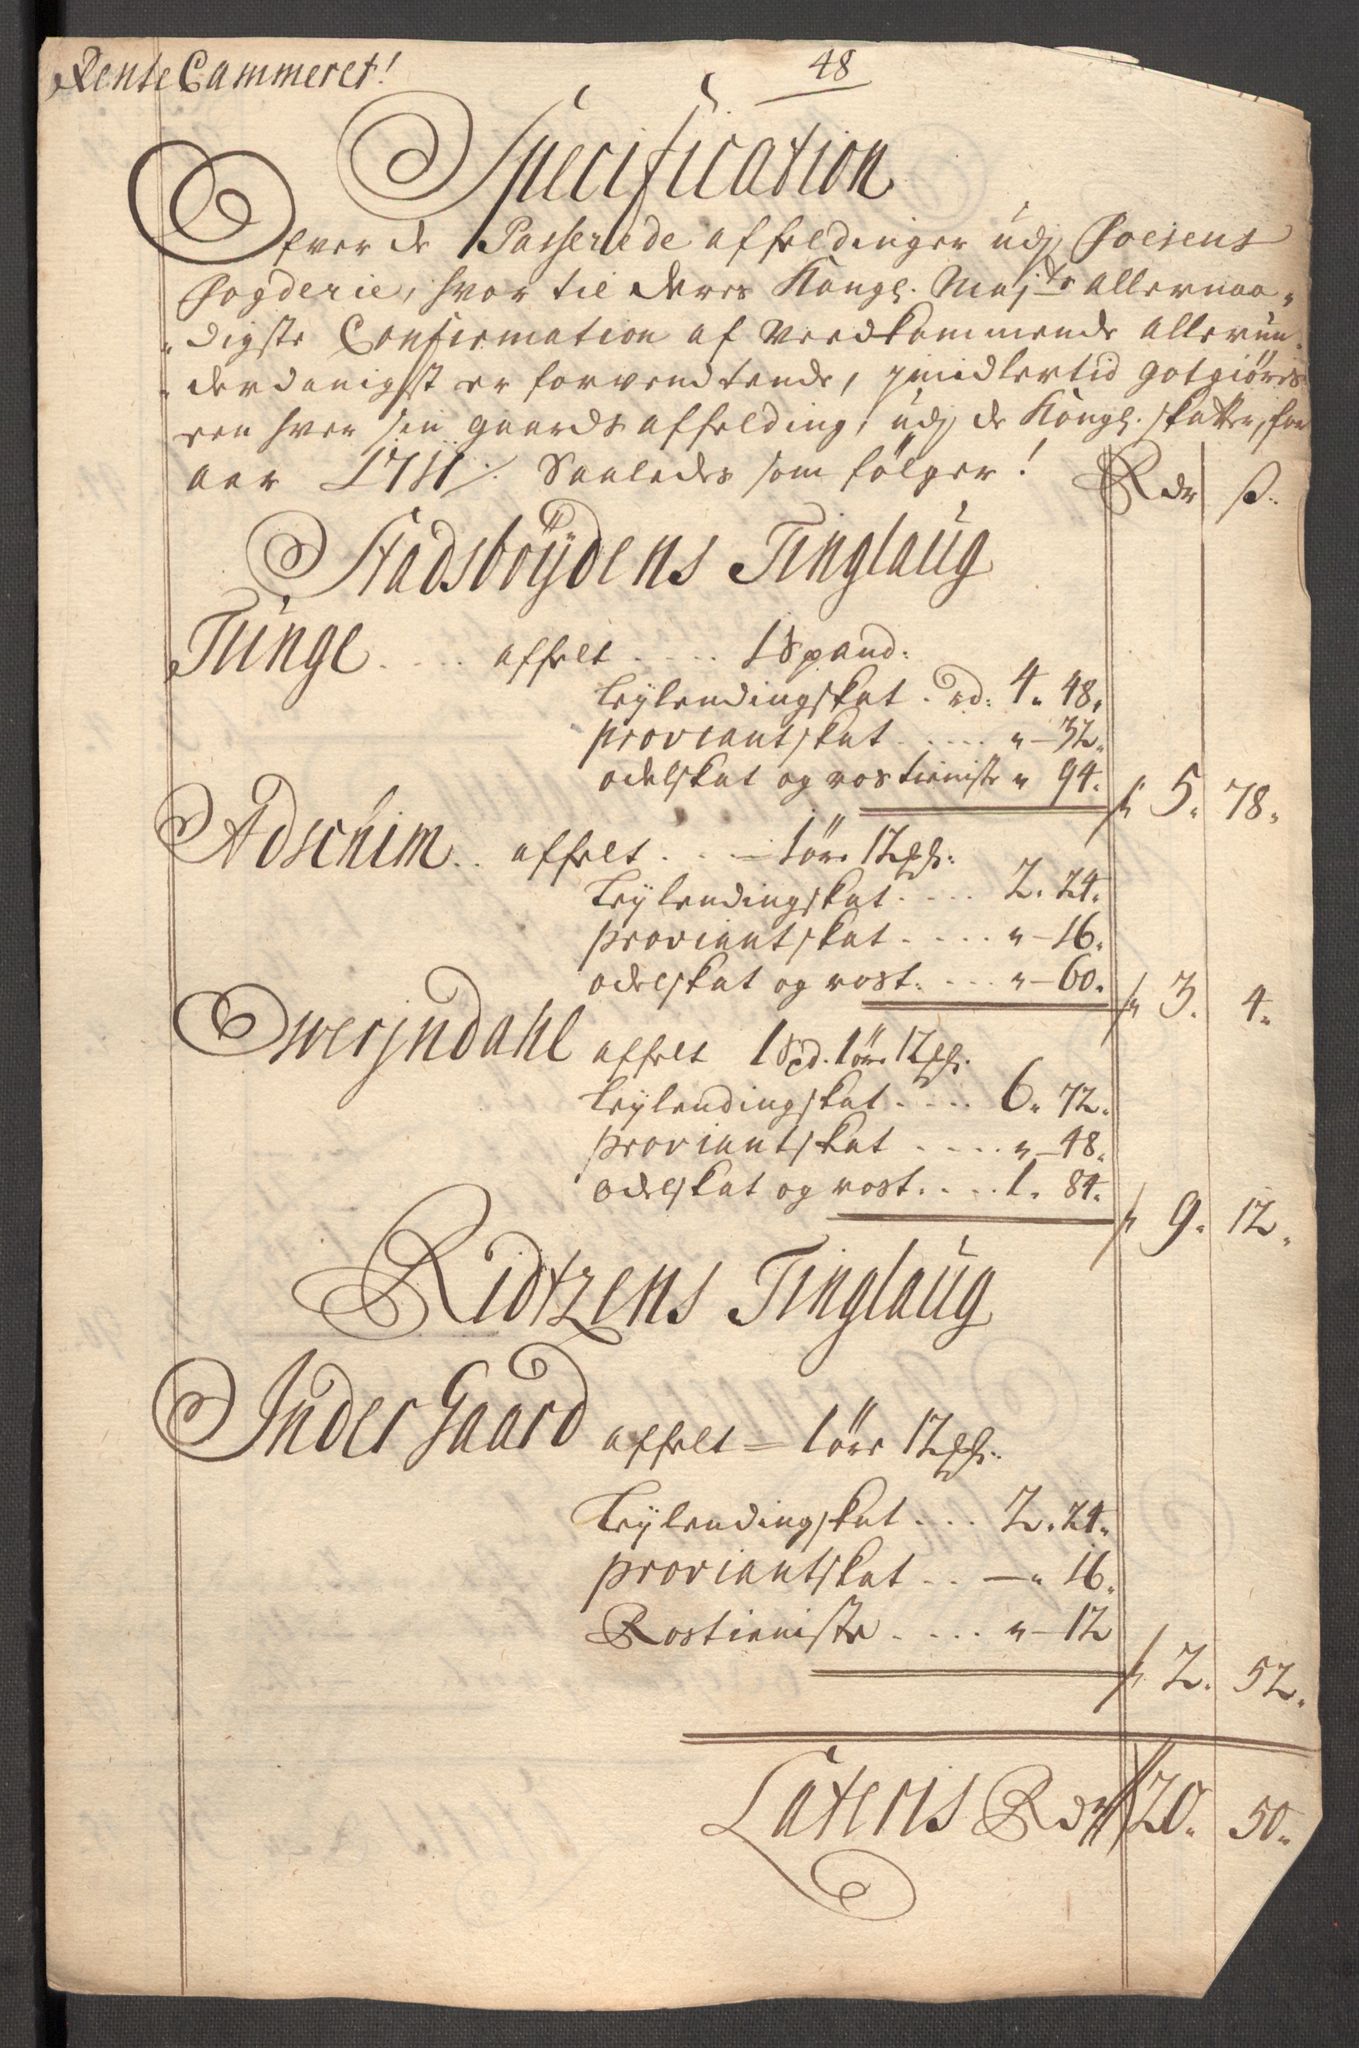 Rente Cammeret!
48
Specification
Ofver de Passerede affældinger udj Fosens
Fogderie, hvor til deres Kongl. Majts allernaa-
digste Confirmation af Vredkommende allerun-
derdanigst er forvendtende, jmidlertid gotgiøris
een hver sin gaards affelding, udj de Kongl. skatter, for
aar 1711. Saaledes som følger!
Rdr ß.
Stadsbøÿdens Tinglaug
Tunge .... affelt .... 1 Spand.
Leÿlendingskat . rd: 4. 48.
proviantskat ..... " - 32.
odelskat og rostieniste " 94. 5. 78.
Adschim .. affelt ... - 1 øre 12 ps:
Leÿlendingskat .... 2. 24.
proviantskat .... " - 16.
odelskat og rost. ... " - 60. 3. 4.
Swerjndahl affelt 1 Spd. 1 øre 12 ps.
Leÿlendingskat .... 6. 72.
proviantskat .... " - 48.
odelskat og rost. ... 1. 84. 9. 12.
Ridtzens Tinglaug
Inder Gaard affelt = 1 øre 12 ps.
Leÿlendingskat ... 2. 24.
proviantskat .. - " 16.
Rostieniste .... " - 12 2. 52.
Lateris Rdr 20. 50.